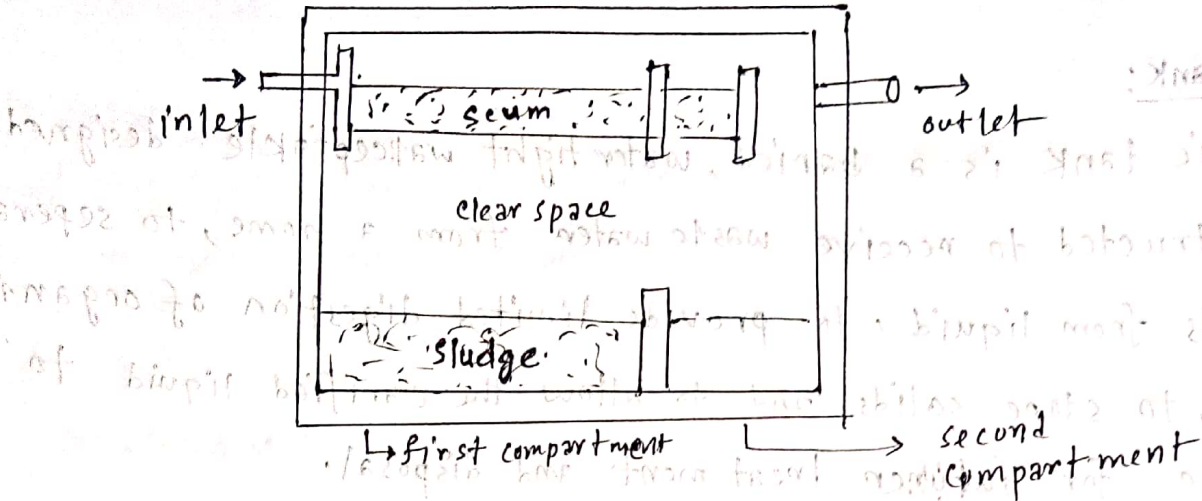 inlet
scum
outlet
clear space
sludge
first compartment
second
compartment